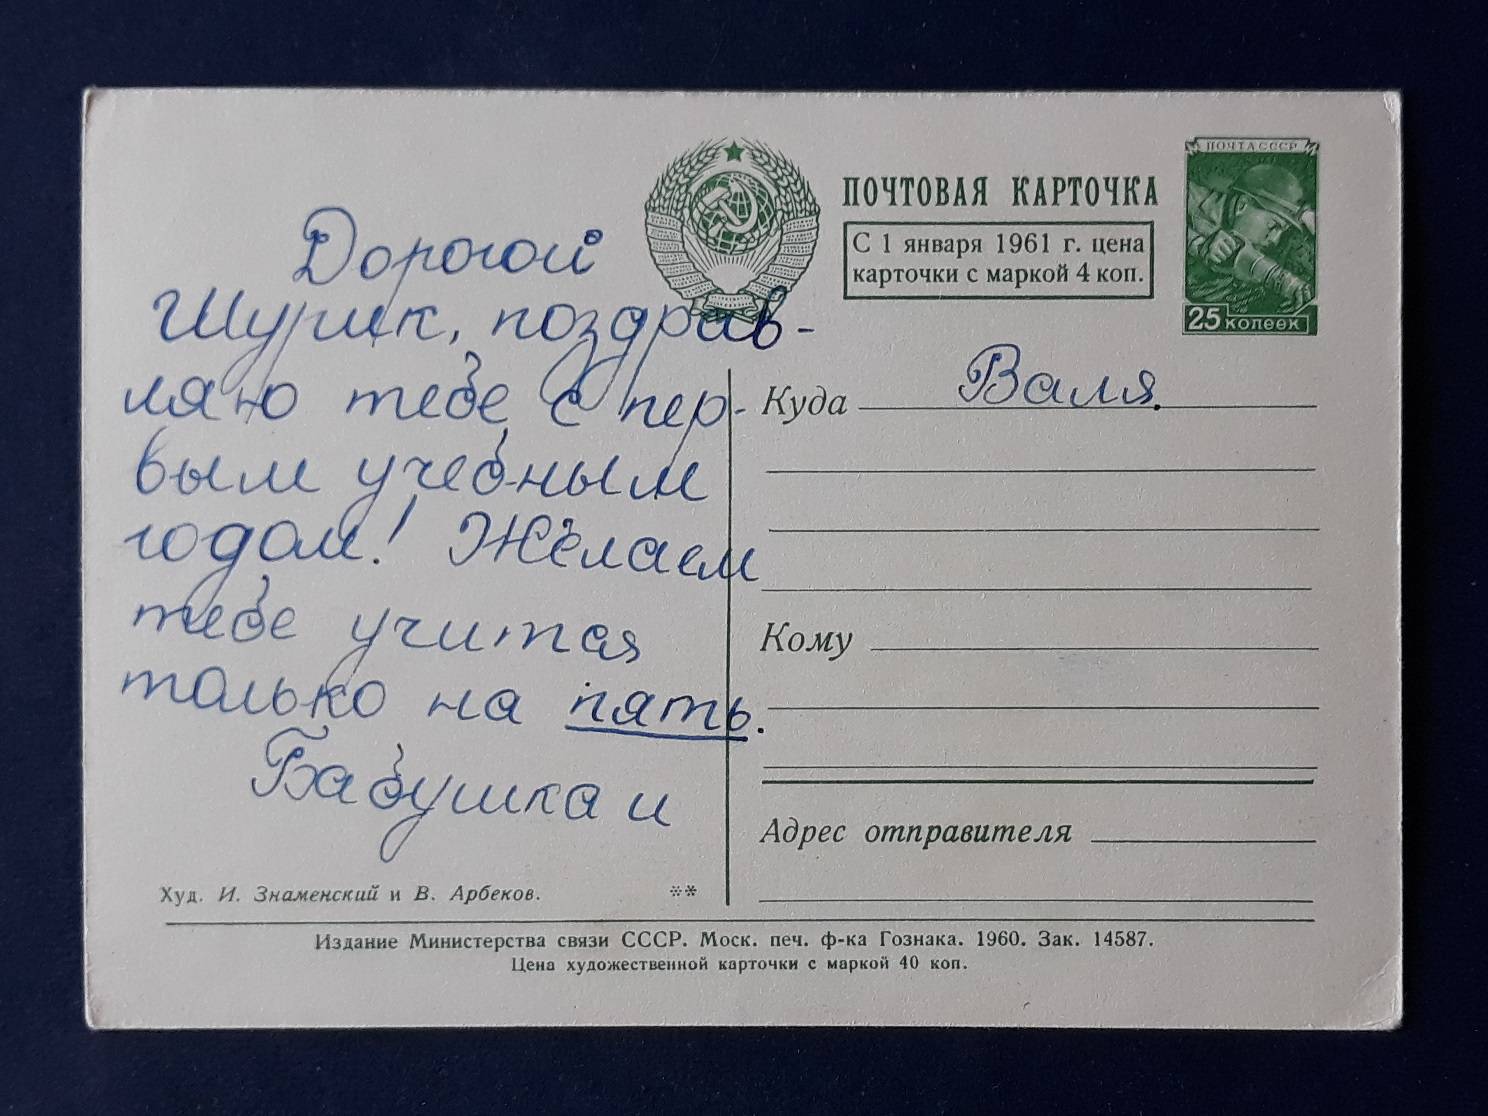 ПОЧТА СССР
ПОЧТОВАЯ КАРТОЧКА
С 1 января 1961 г. цена
карточки с маркой 4 коп.
25 копеек
Дорогой
Шурик, поздрав-
ляю тебе с пер-
вым учебным
годом! Желаем
тебе учится
только на пять.
Бабушка и
Валя.
Куда
Кому
Адрес отправителя
Худ. И. Знаменский и В. Арбеков.
**
Издание Министерства связи СССР. Моск. печ. ф-ка Гознака. 1960. Зак. 14587.
Цена художественной карточки с маркой 40 коп.